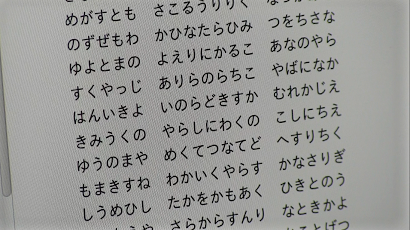 めがすとも　さこるうりりく
のずぜもわ　かひなたらひみ　つをちさな
ゆよとまの　よえりにかるこ　あなのやら
すくやっじ　ありらのらちこ　やばになか
はんいきよ　いのらどきすか　むれかじえ
きみうくの　やらしにわくの　こしにちえ
ゆうのまや　めくてつなてど　へすりちく
もまきすね　わかいくやらす　かなさりぎ
しうめひし　たかをかもあく　ひきとのう
さらからすんり　なときかよ